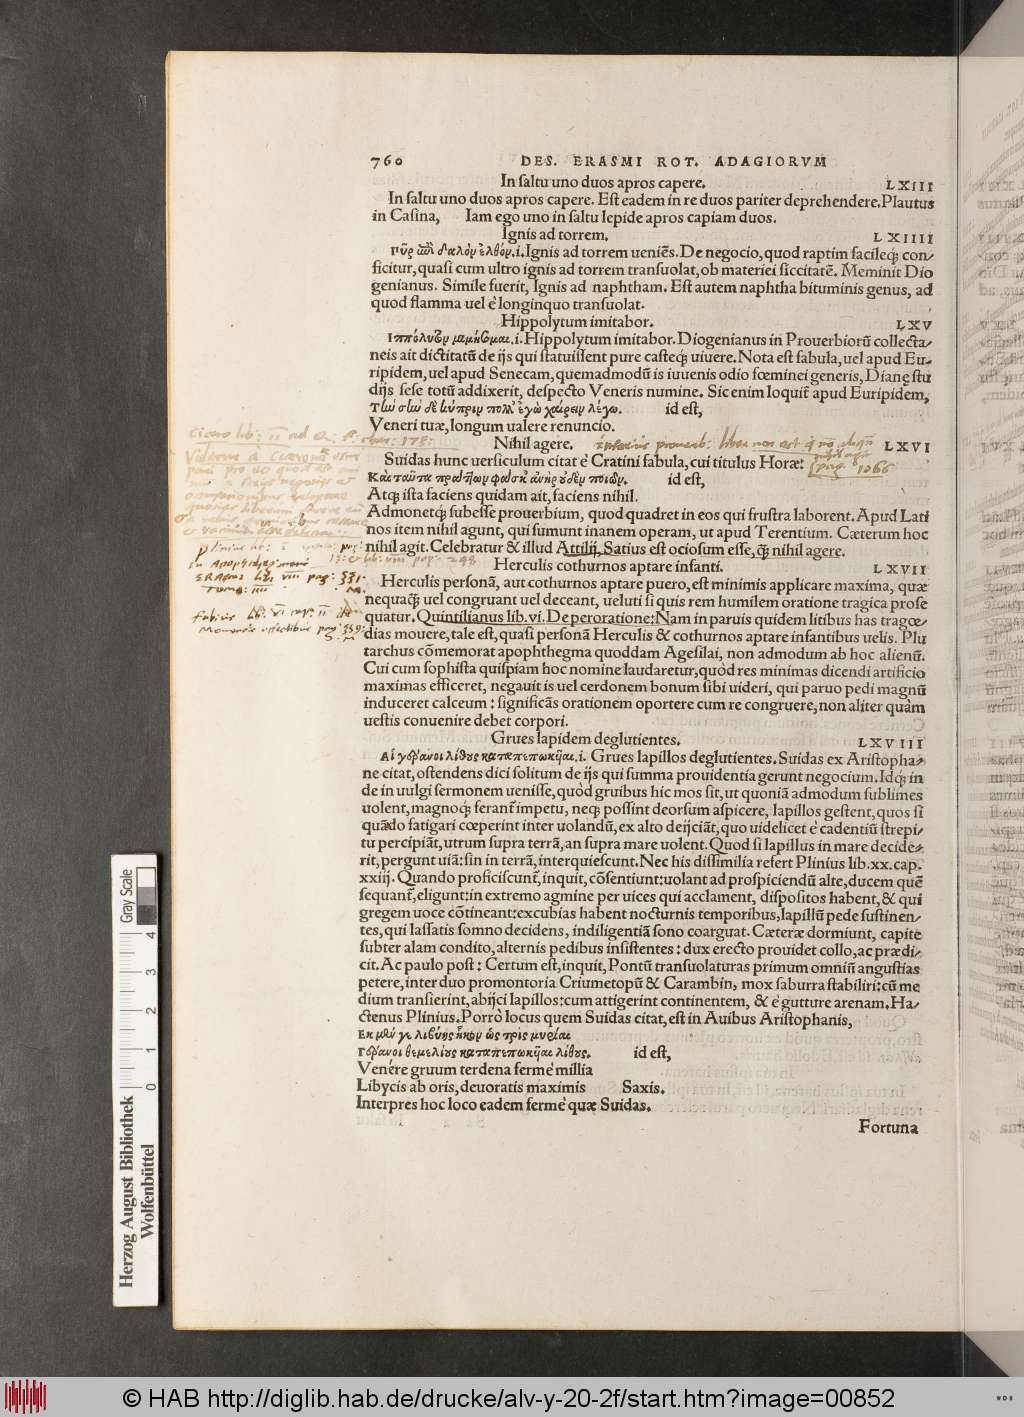 760 DES. ERASMI ROT. ADAGIORVM
In saltu uno duos apros capere. LXIII
In saltu uno duos apros capere. Est eadem in re duos pariter deprehendere. Plautus
in Casina, Iam ego uno in saltu lepide apros capiam duos.
Ignis ad torrem. LXIIII
Πῦρ ἐπὶ δαλὸν ἐλθόν .i. Ignis ad torrem ueniẽs. De negocio, quod raptim facileq́; con/
ficitur, quasi cum ultro ignis ad torrem transuolat, ob materiei siccitatẽ. Meminit Dio
genianus. Simile fuerit, Ignis ad naphtham. Est autem naphtha bituminis genus, ad
quod flamma uel è longinquo transuolat.
Hippolytum imitabor. LXV
Ἱππόλυτον μιμήσομαι .i. Hippolytum imitabor. Diogenianus in Prouerbiorũ collecta/
neis ait dictitatũ de ijs qui statuissent pure casteq́; uiuere. Nota est fabula, uel apud Eu-
ripidem, uel apud Senecam, quemadmodũ is iuuenis odio fœminei generis, Dianę stu
dijs sese totũ addixerit, despecto Veneris numine. Sic enim loquit̃ apud Euripidem,
Τὴν σὴν δὲ κύπριν πόλλ' ἐγὼ χαίρειν λέγω. id est,
Veneri tuæ, longum ualere renuncio.
Nihil agere. LXVI
Suidas hunc uersiculum citat è Cratini fabula, cui titulus Horæ:
id est,
Atq; ista faciens quidam ait, faciens nihil.
Admonetq́; subesse prouerbium, quod quadret in eos qui frustra laborent. Apud Lati
nos item nihil agunt, qui sumunt inanem operam, ut apud Terentium. Cæterum hoc
nihil agit. Celebratur & illud Attilij, Satius est ociosum esse, q̃; nihil agere.
Herculis cothurnos aptare infanti. LXVII
Herculis personã, aut cothurnos aptare puero, est minimis applicare maxima, quæ
nequaq̃; uel congruant uel deceant, ueluti si quis rem humilem oratione tragica prose
quatur. Quintilianus lib. vi. De peroratione: Nam in paruis quidem litibus has tragœ/
dias mouere, tale est, quasi personã Herculis & cothurnos aptare infantibus uelis. Plu
tarchus cõmemorat apophthegma quoddam Agesilai, non admodum ab hoc alienũ.
Cui cum sophista quispiam hoc nomine laudaretur, quòd res minimas dicendi artificio
maximas efficeret, negauit is uel cerdonem bonum sibi uideri, qui paruo pedi magnũ
induceret calceum: significãs orationem oportere cum re congruere, non aliter quàm
uestis conuenire debet corpori.
Grues lapidem deglutientes. LXVIII
Αἱ γέρανοι λίθους καταπεπωκυῖαι .i. Grues lapillos deglutientes. Suidas ex Aristopha/
ne citat, ostendens dici solitum de ijs qui summa prouidentia gerunt negocium. Idq́; in
de in uulgi sermonem uenisse, quòd gruibus hic mos sit, ut quoniã admodum sublimes
uolent, magnoq́; ferant̃ impetu, neq; possint deorsum aspicere, lapillos gestent, quos si
quãdo fatigari cœperint inter uolandũ, ex alto deijciãt, quo uidelicet è cadentiũ strepi/
tu percipiãt, utrum supra terrã, an supra mare uolent. Quod si lapillus in mare decide-
rit, pergunt uiã: sin in terrã, interquiescunt. Nec his dissimilia refert Plinius lib. xx. cap.
xxiij. Quando proficiscunt̃, inquit, cõsentiunt: uolant ad prospiciendũ alte, ducem quẽ
sequant̃, eligunt: in extremo agmine per uices qui acclament, dispositos habent, & qui
gregem uoce cõtineant: excubias habent nocturnis temporibus, lapillũ pede sustinen/
tes, qui lassatis somno decidens, indiligentiã sono coarguat. Cæteræ dormiunt, capite
subter alam condito, alternis pedibus insistentes: dux erecto prouidet collo, ac prædi/
cit. Ac paulo post: Certum est, inquit, Pontũ transuolaturas primum omniũ angustias
petere, inter duo promontoria Criumetopũ & Carambin, mox saburra stabiliri: cũ me
dium transierint, abijci lapillos: cum attigerint continentem, & è gutture arenam. Ha/
ctenus Plinius. Porrò locus quem Suidas citat, est in Auibus Aristophanis,
Ἐκ μὲν γε λιβύης ἧκον ὡς τρὶς μυρίαι
Γέρανοι θεμελίους καταπεπωκυῖαι λίθους. id est,
Venere gruum terdena fermè millia
Libycis ab oris, deuoratis maximis Saxis.
Interpres hoc loco eadem fermè quæ Suidas.
Fortuna
Herzog August Bibliothek
Wolfenbüttel
Gray Scale
0 1 2 3 4
© HAB http://diglib.hab.de/drucke/alv-y-20-2f/start.htm?image=00852